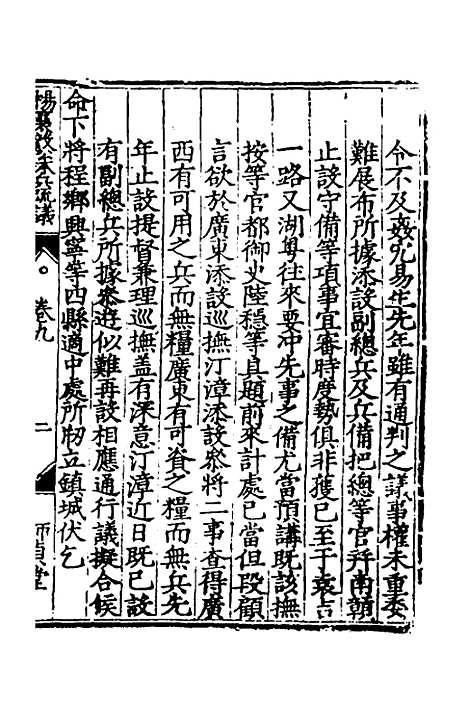 令不及姦宄易生先年雖有通判之議事權未重委
難展布所據添設副總兵及兵備把總等官幷南贛
止該守備等項事宜審時度勢俱非獲已至于袁吉
一路又湖粵往來要冲先事之備尤當預講旣該撫
按等官都御史陸穩等具題前來計處已當但段顧
言欲於廣東添設巡撫汀漳添設叅將二事查得廣
西有可用之兵而無糧廣東有可資之糧而無兵先
年止設提督兼理巡撫蓋有深意汀漳近日旣已設
有副總兵所據叅逰似難再設相應通行議擬合候
命下將程鄉興寧等四縣適中處所刱立鎮城伏乞
楊襄毅本兵疏議
卷九
二
師貞堂